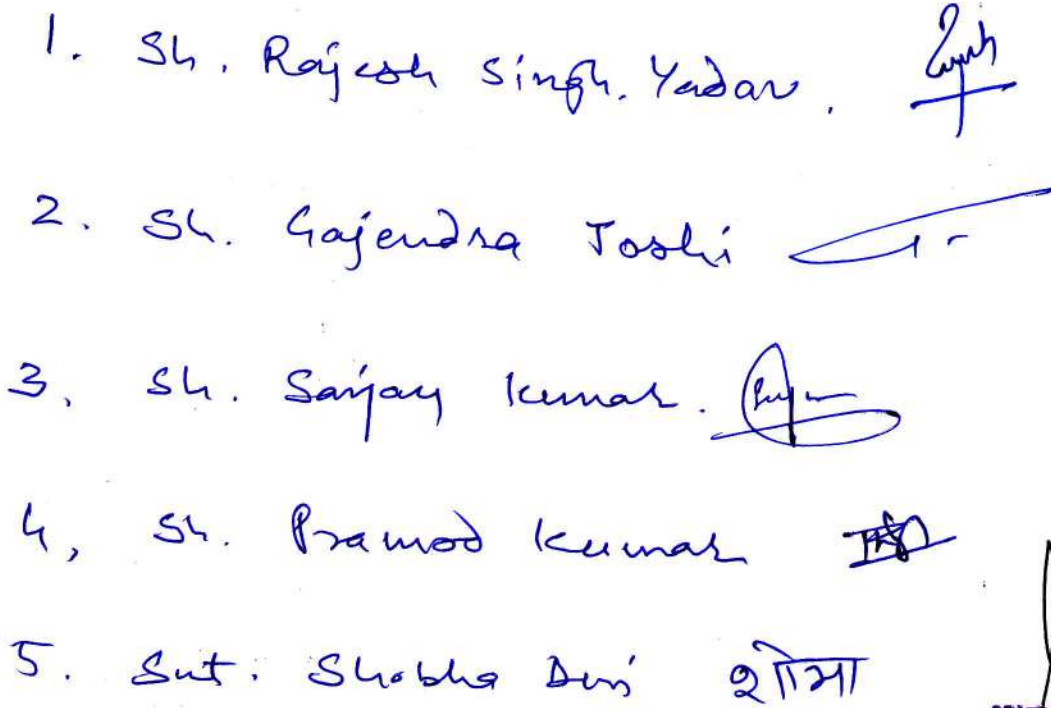 1. Sh. Rajesh Singh. Yadav.
2. Sh. Gajendra Joshi
3. Sh. Sanjay Kumar.
4, Sh. Pramod Kumar
5. Smt. Shobha Devi शोभा